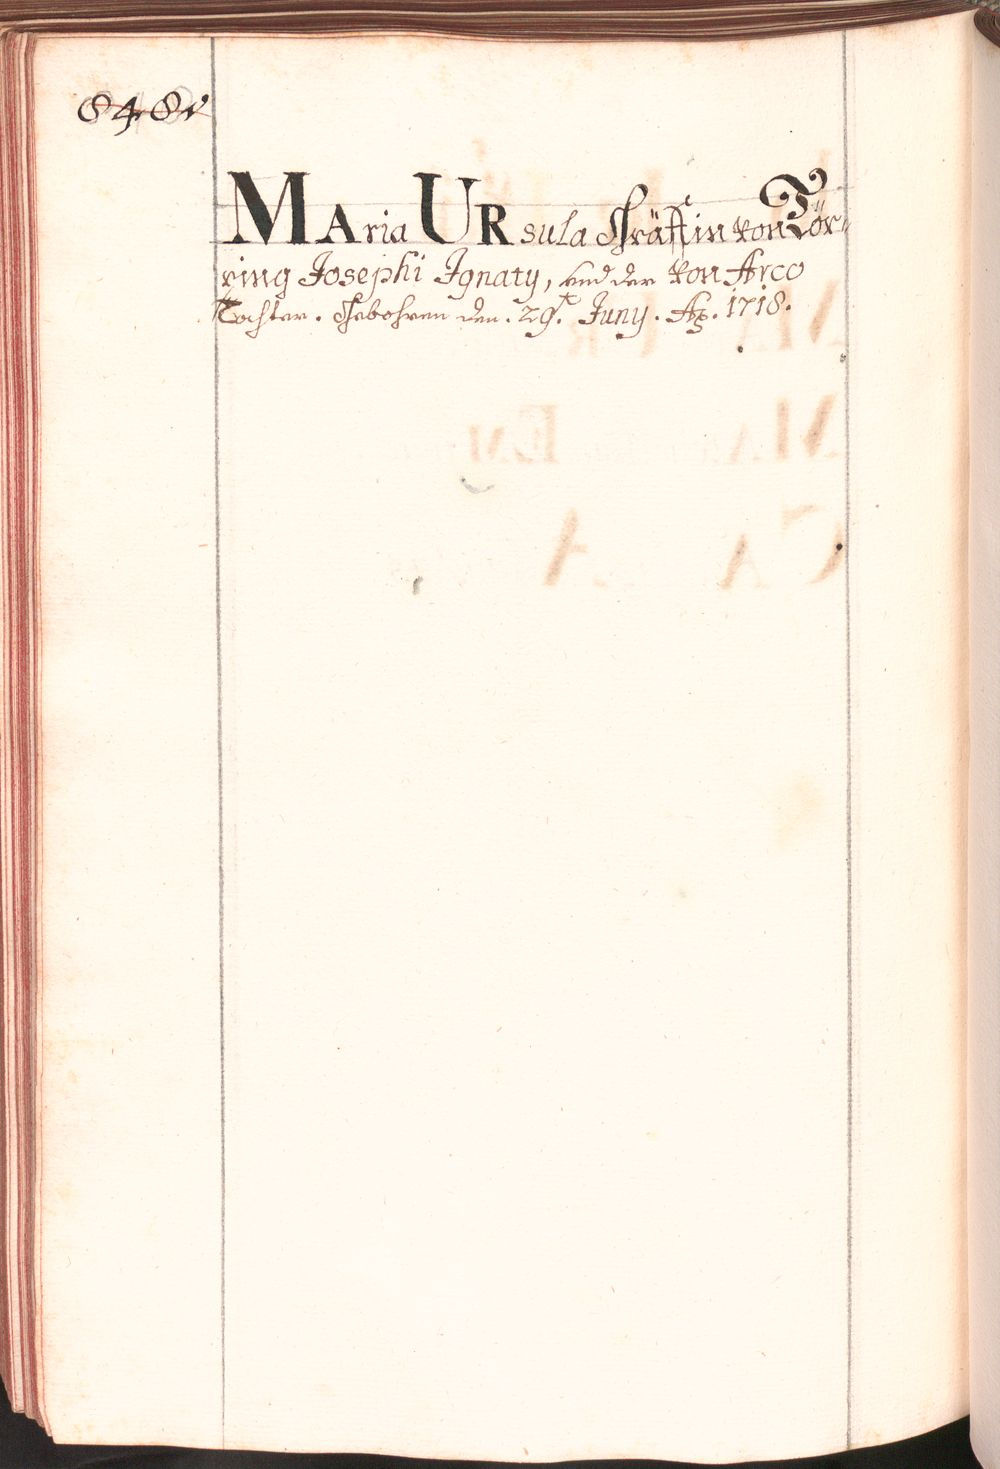 848v
MAria URsula Gräffin von Tör-
ring Josephi Ignaty, und der von Arco
Tochter. Gebohren den. 29.t Juny. Ao. 1718.